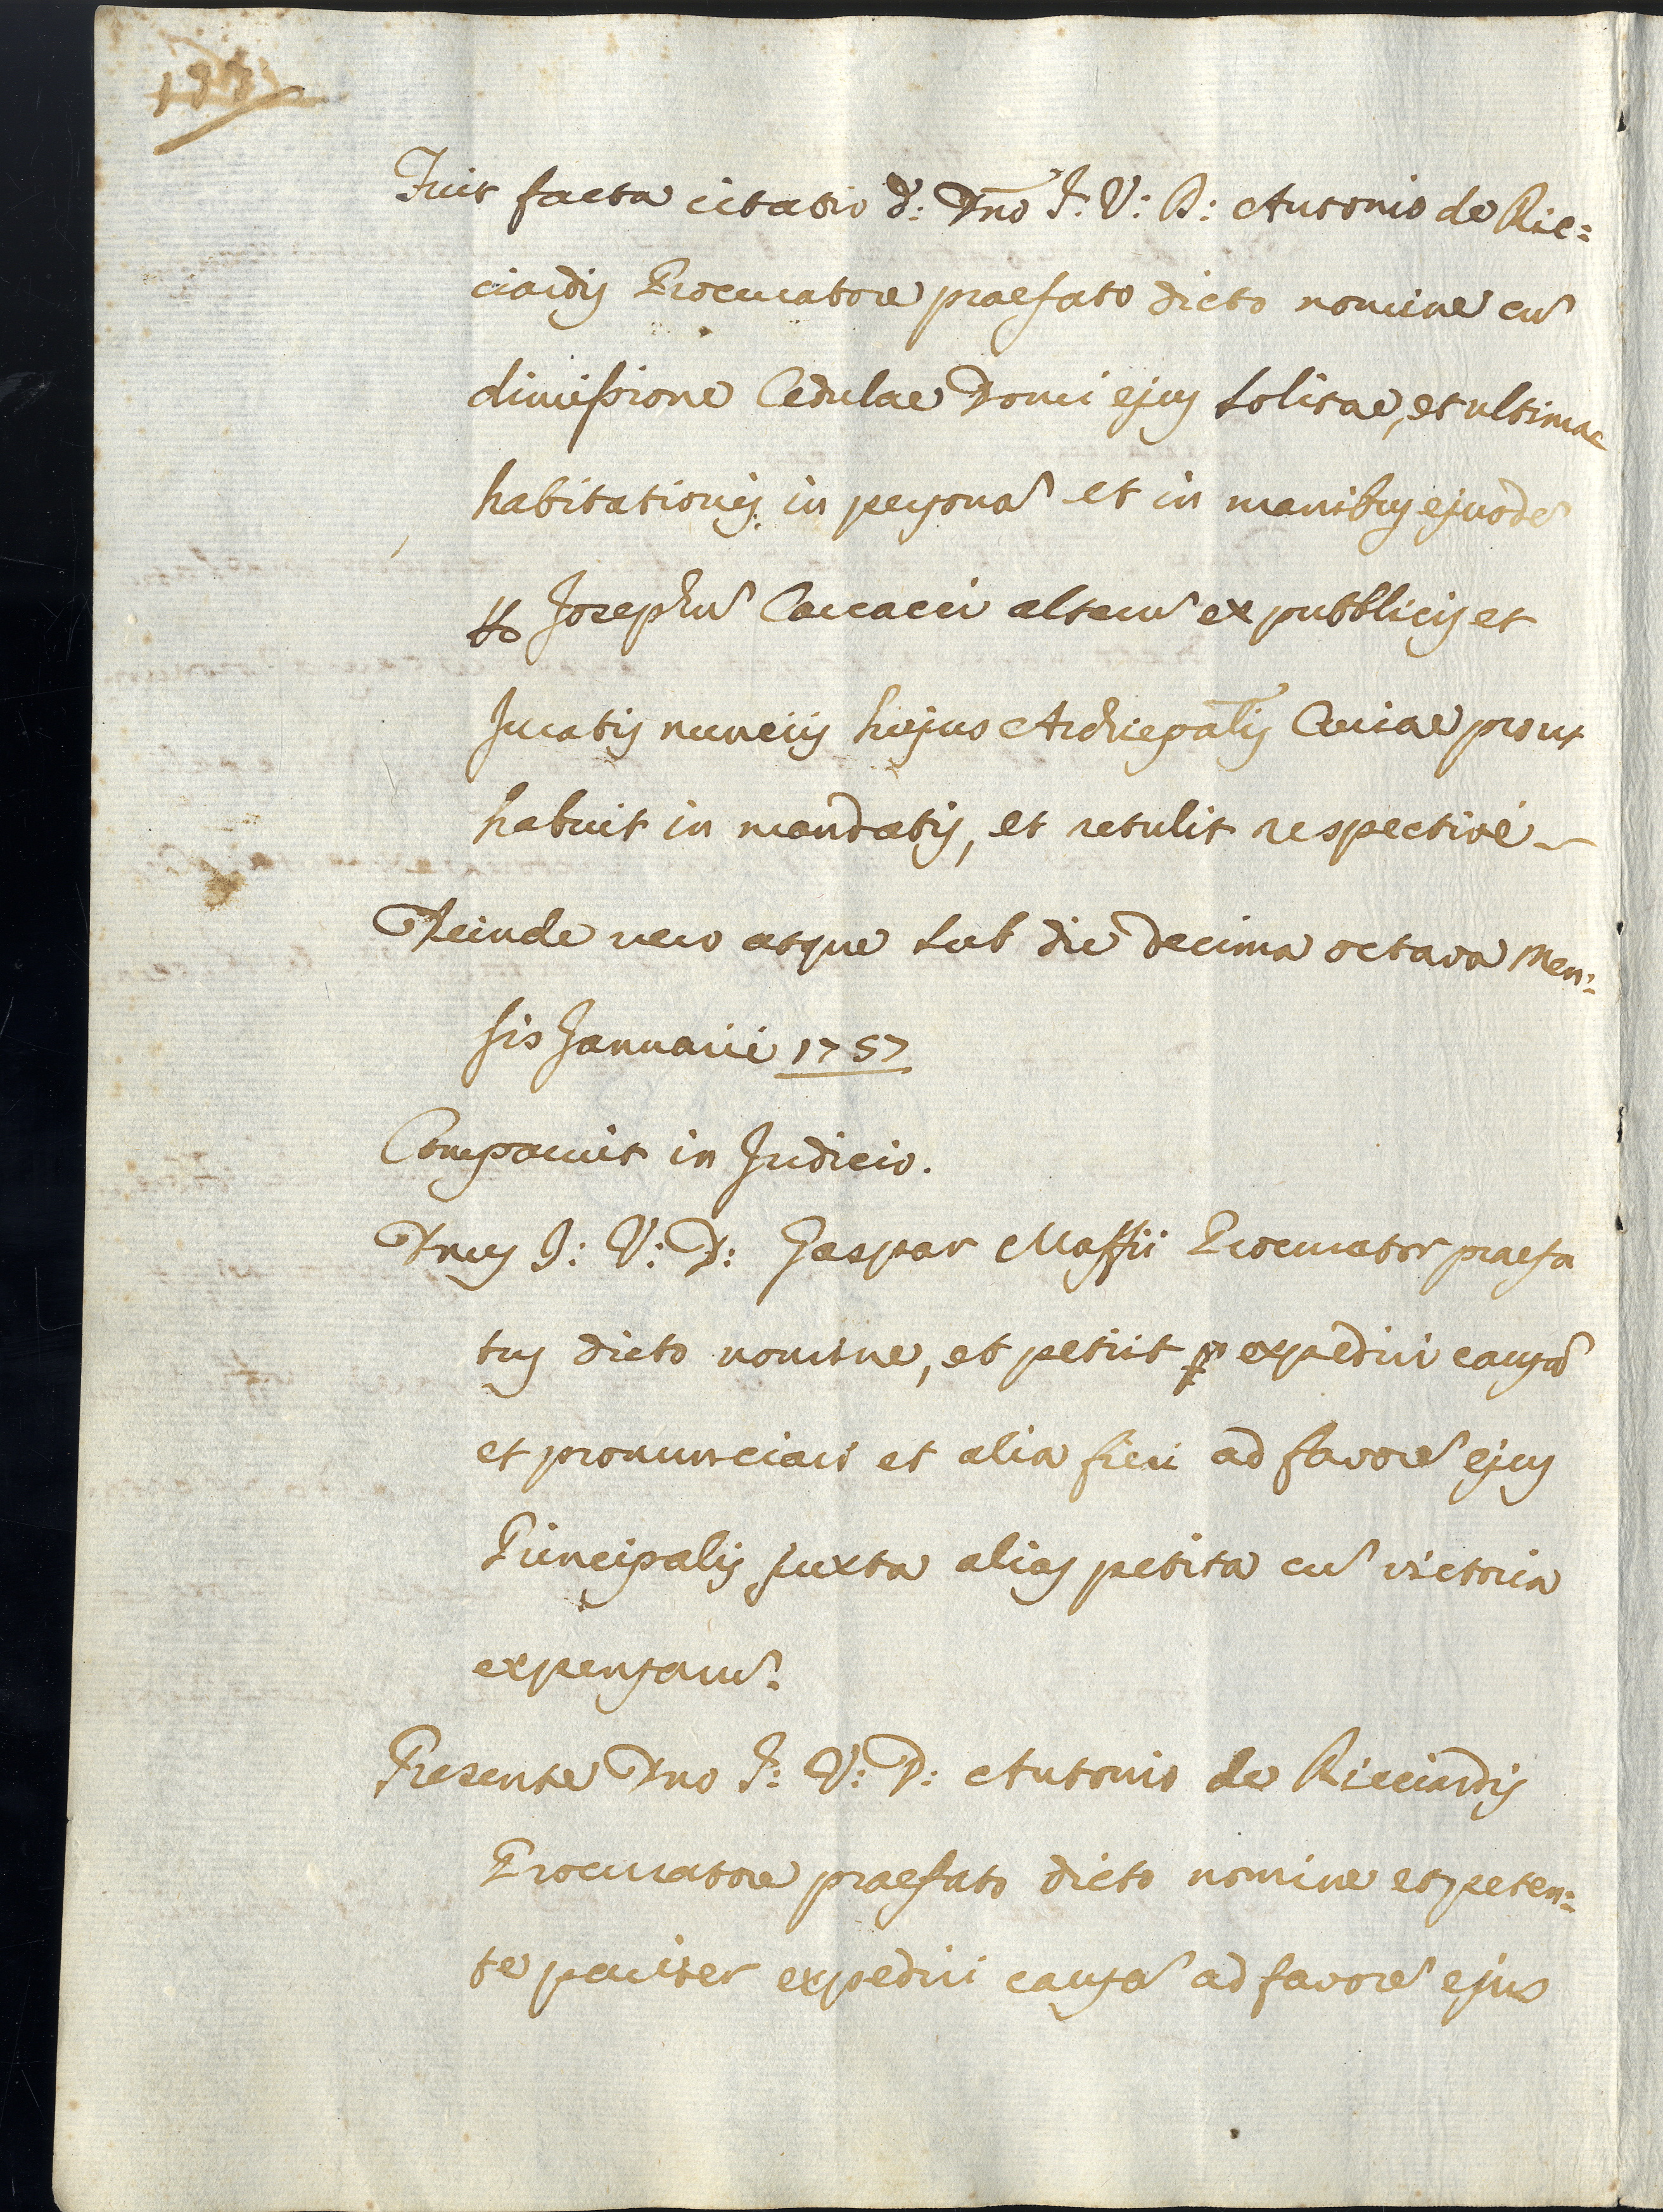 Fuit facta citatio d: Dno J: V: D: Antonio de Ric=
ciardis Procuratore praefato dicto nomine cu
dimissione Cedulae Domi ejus solitae, et ultimae
habitationis in persona et in manibus ejusde
Josephu Carcacci alteru ex pubblicis et
Juratis nunciis hujus Archiepalis Curiae prout
habuit in mandatis, et retulit respectivè
Deinde vero atque sub die decima octava Men=
sis Januarii 1757
Comparuit in Judicio.
Dnus J: V: D: Gaspar Maffii Procurator praefa
tus dicto nomine, et petiit expediri causa
et pronunciari et alia fieri ad favore ejus
Principalis juxta alias petita cu victoria
expensaru.
Presente Dno J: V: D: Antonio de Ricciardis
Procuratore praefato dicto nomine et peten=
te pariter expediri causa ad favore ejus